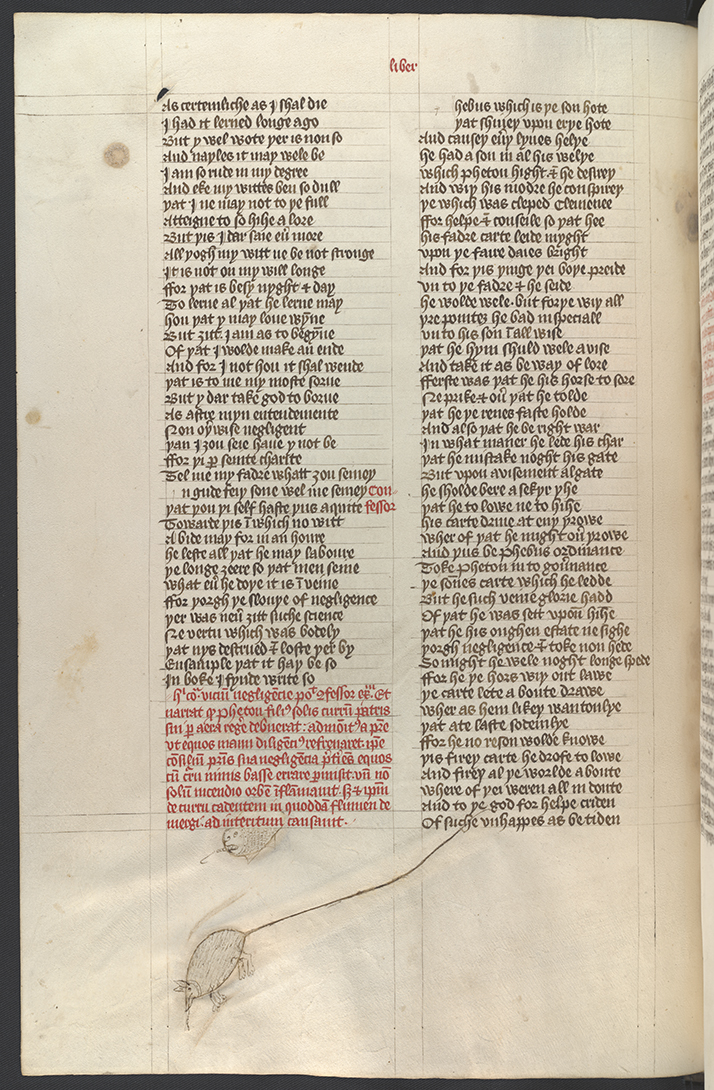 liber
As certeinliche as I shal die
I had it lerned longe ago
But y wel wote yer is non so
And nayles it may wele be
I am so rude in my degree
And eke my wittes ben so dull
yat I ne may not to ye full
Atteigne to so hihe a lore
But yis I dar saie eu̅ more
All yogh my witt ne be not stronge
It is not on my will longe
ffor yat is besy nyght & day
To lerne al yat he lerne may
hou yat y may loue wy̅ne
But ȝitt I am as to begy̅ne
Of yat I wolde make an ende
And for I not hou it shal wende
yat is to me my moste sorue
But y dar take god to borue
As aftr̅ myn entendemente
Non oy̅ wise negligent
yan I ȝou seie haue y not be
ffor yi p̲ seinte charite
Tel me my fadre whatt ȝou semey
n gude feiy sone wel me semey Con
yat you yi self haste yus aquite fessor
Towarde yis ī which no witt
Abide may for in an houre
he leste all yat he may laboure
ye longe ȝeere so yat men seine
what eu̅ he doye it is ī veine
ffor yorgh ye slouye of negligence
yer was neu̅ ȝitt suche science
Ne vertu which was bodely
yat nys destrued & loste yer by
Ensample yat it hay be so
In boke I fynde write so
hic co̅ vicium negligēcie po̅ c̅fessor ex̅. Et
narrat q̅ pheton filiꝰ solis currū patris
sui p̲ aera reg̅e debuerat: admōitꝰ a pr̅e
vt equos manu diligēciꝰ refrenaret. ip̅e
cōsiliū pr̅is sua negligencia p̅t̅iēs equos
cū cr̅u nimis basse errare p̲misit. vn̅ nō
solū incendio orbem īflāmauit. S; & ip̅m
de curru cadentem in quoddā flumen de
mergi: ad interitum causauit.
hebus which is ye son hote
yat shiney vpon erye hote
And causey eu̅y lyues helye
he had a son in al his welye
which Pheton hight & he desirey
And wiy his modre he conspirey
ye which was cleped Clemenee
ffor helpe & conseile so yat hee
his fadre carte lede myght
vpon ye faire daies bright
And for yis yinge yei boye preide
vn to ye fadre & he seide
he wolde wele. but forye wiy all
yre pointes he bad in speciall
vn to his son ī all wise
yat he hym shuld wele avise
And take it as be way of lore
fferste was yat he his horse to sore
Ne prike & ou̅ yat he tolde
yat he ye renes faste holde
And also yat he be right war
In what maner he lede his char
yat he mistake noght his gate
But vpon avisement algate
he sholde bere a sekyr yhe
yat he to lowe ne to hihe
his carte driue at eny yrowe
wher of yat he might ou̅ yrowe
And yus be Phebus ordinance
Toke Pheton in to gou̅nance
ye son̅es carte which he ledde
But he such veine glorie hadd
Of yat he was sett vpon hihe
yat he his oughen estate ne sighe
yorgh negligence & toke non hede
So might he wele noght longe spede
ffor he ye hors wiy out lawe
ye carte lete a boute drawe
wher as hem likey wantonlye
yat ate laste sodeinlye
ffor he no reson wolde knowe
yis firey carte he drofe to lowe
And firey al ye worlde a boute
where of yei weren all in doute
And to ye god for helpe criden
Of suche vnhappes as be tiden